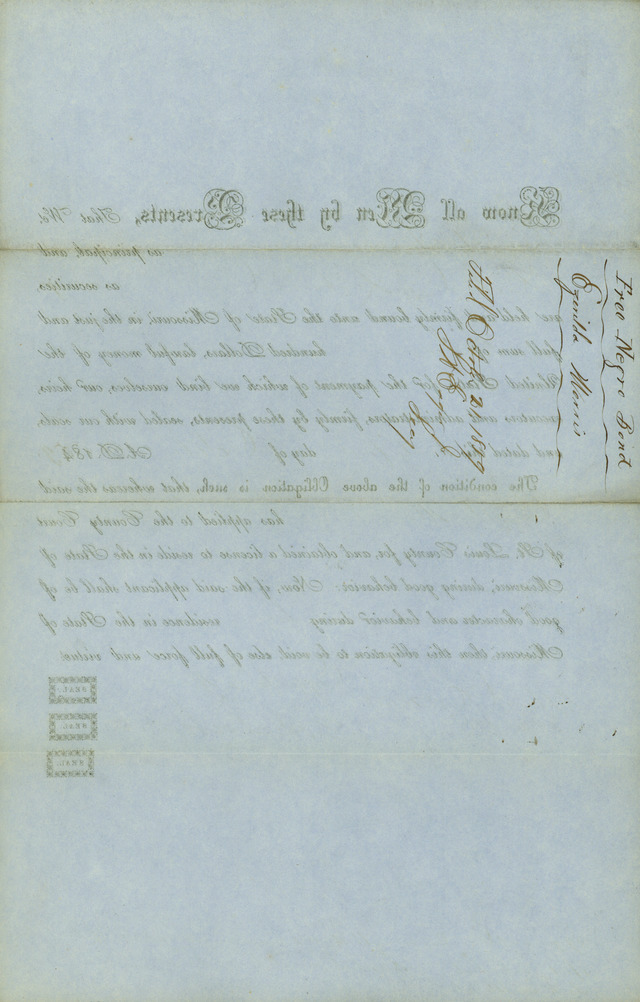 Free Negro Bond
Ezerilda Morris
Fil'd Octo 21, 1847
Know all Men by these Presents, That We
as principal, and
as securities
are held and firmly bound unto the State of Missouri, in the just and
full sum of hundred Dollars, lawful money of the
United States, for the payment of which we bind ourselves, our heirs,
executors and administrators, firmly by these presents, sealed with our seals,
and dated this day of A. D. 184
The condition of the above Obligation is such, that whereas the said
has applied to the County Court
of St. Louis County for, and obtained a license to reside in the State of
Missouri, during good behavior: Now, if the said applicant shall be of
good character and behavior during residence in the State of
Missouri, then this obligation to be void, else of full force and virtue.
SEAL.
SEAL.
SEAL.